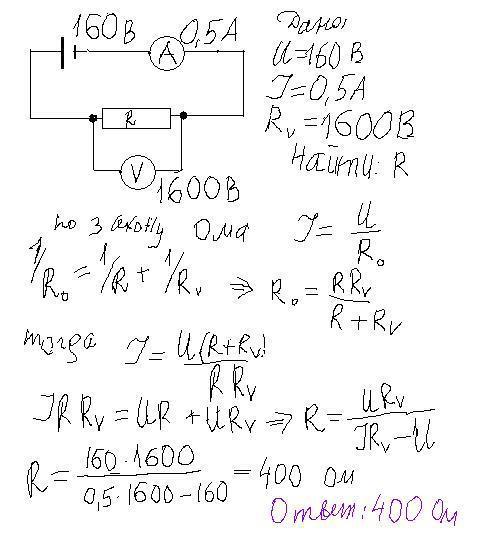 160В 0,5А
A
R
V
1600В
Дано:
U=160 В
J=0,5А
Rv=1600В
Найти: R
по закону Ома J= U/R₀
1/R₀ = 1/R + 1/Rv ⇒ R₀ = RRv/R+Rv
тогда J= U(R+Rv)/RRv
JRRv = UR + URv ⇒ R= URv/JRv-U
R= 160·1600/0,5·1600-160 = 400 ом
Ответ: 400 Ом